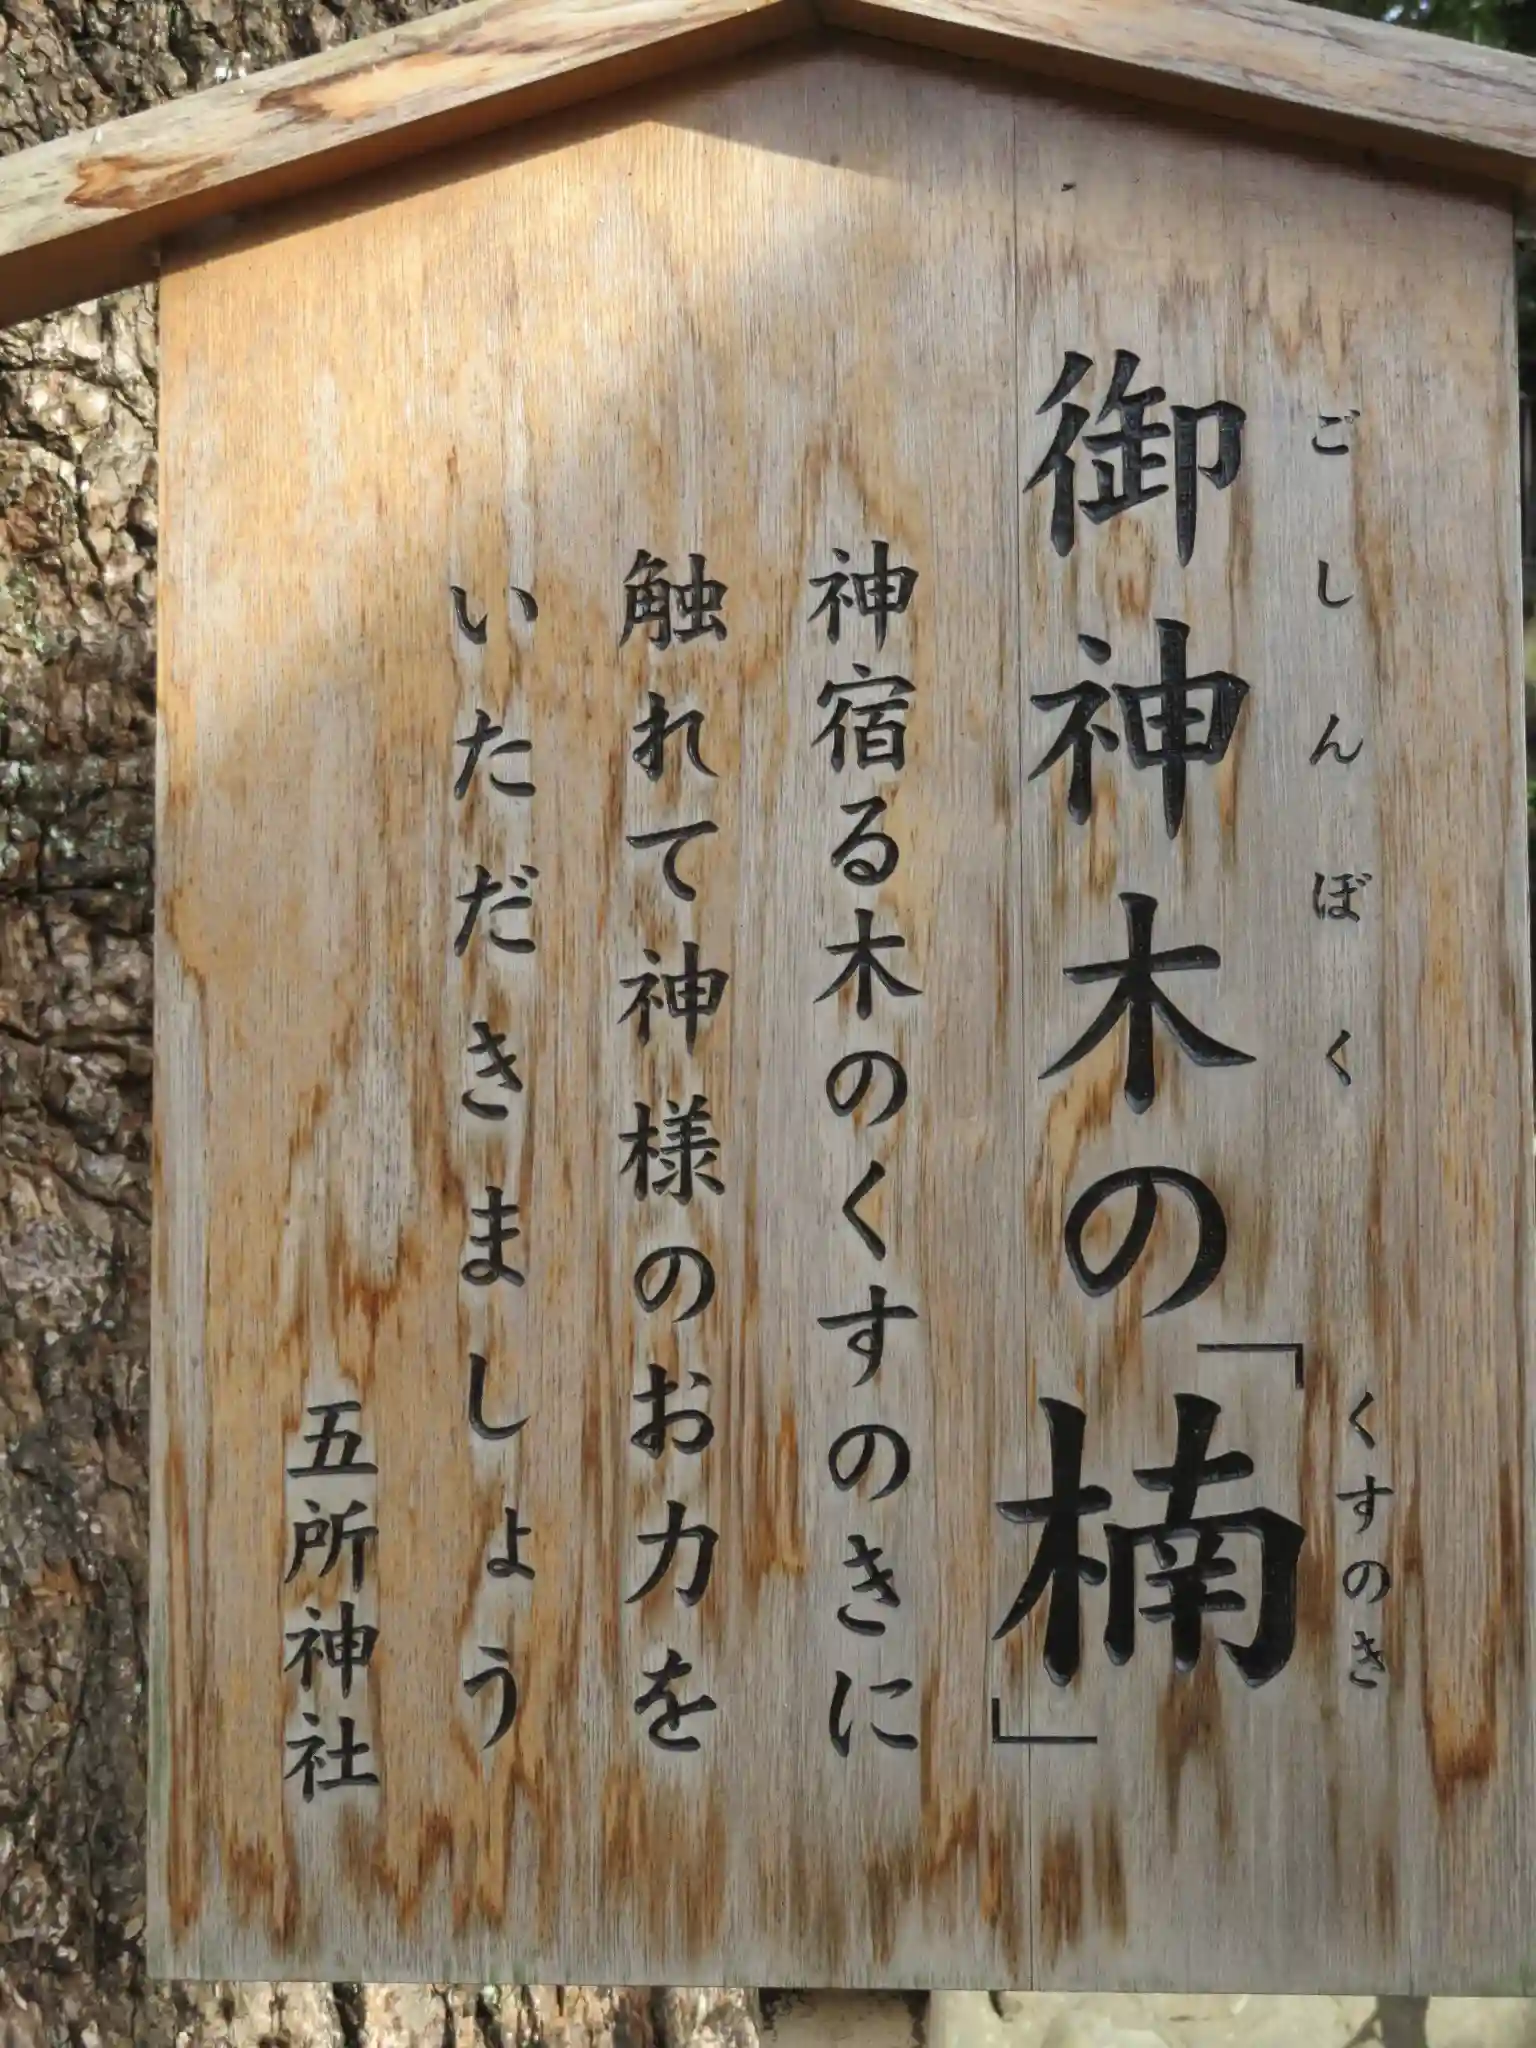 ごしんぼく くすのき
御神木の「楠」
神宿る木のくすのきに
触れて神様のお力を
いただきましょう
五所神社